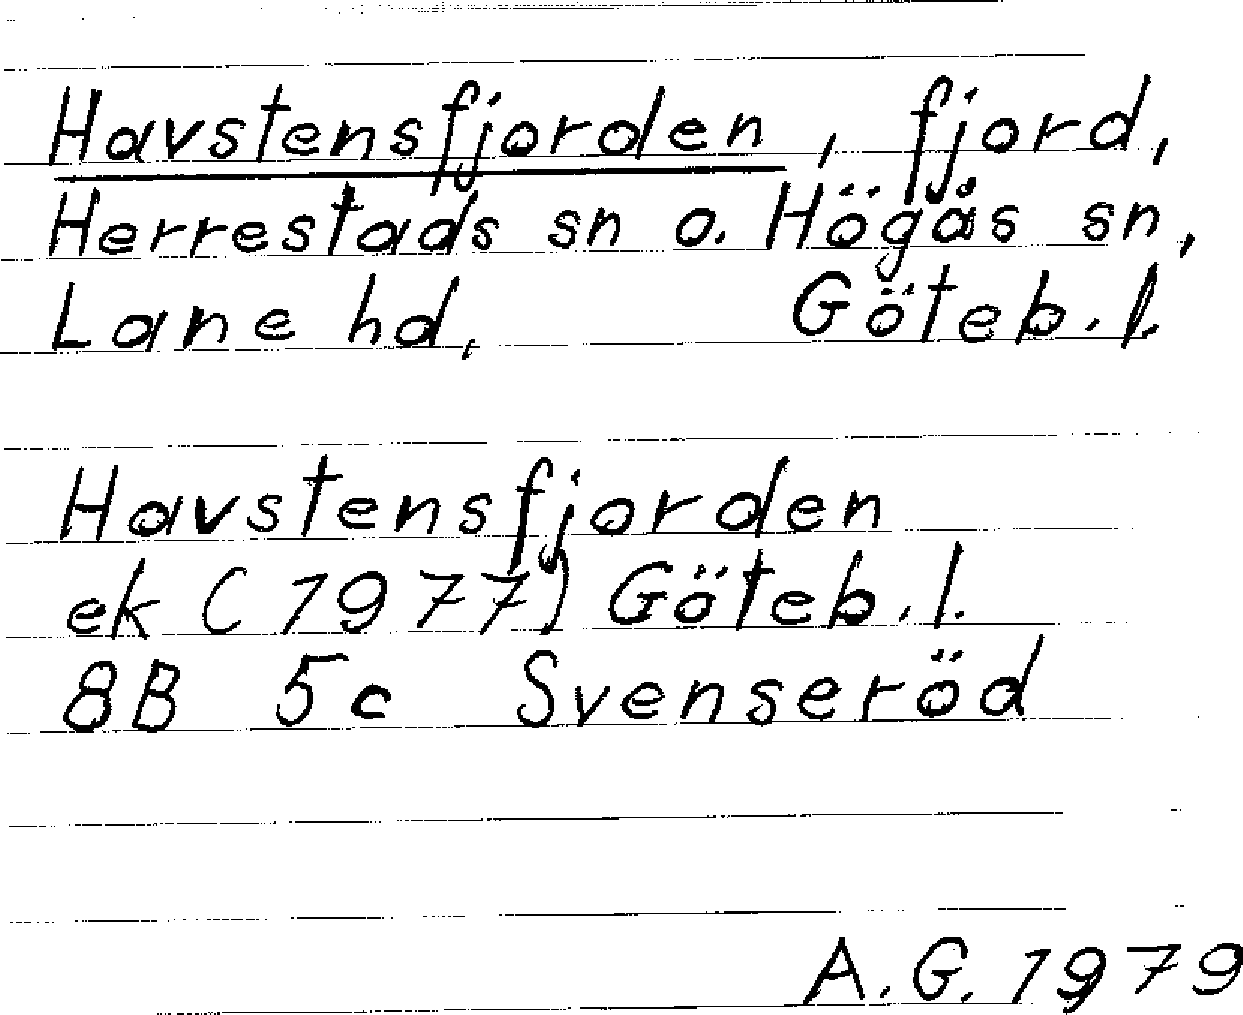 Havstensfjorden, fjord,
Herrestads sn o. Högås sn,
Lane hd, Göteb. l.
Havstensfjorden
ek (1977) Göteb. l.
8B 5c Svenseröd
A.G. 1979